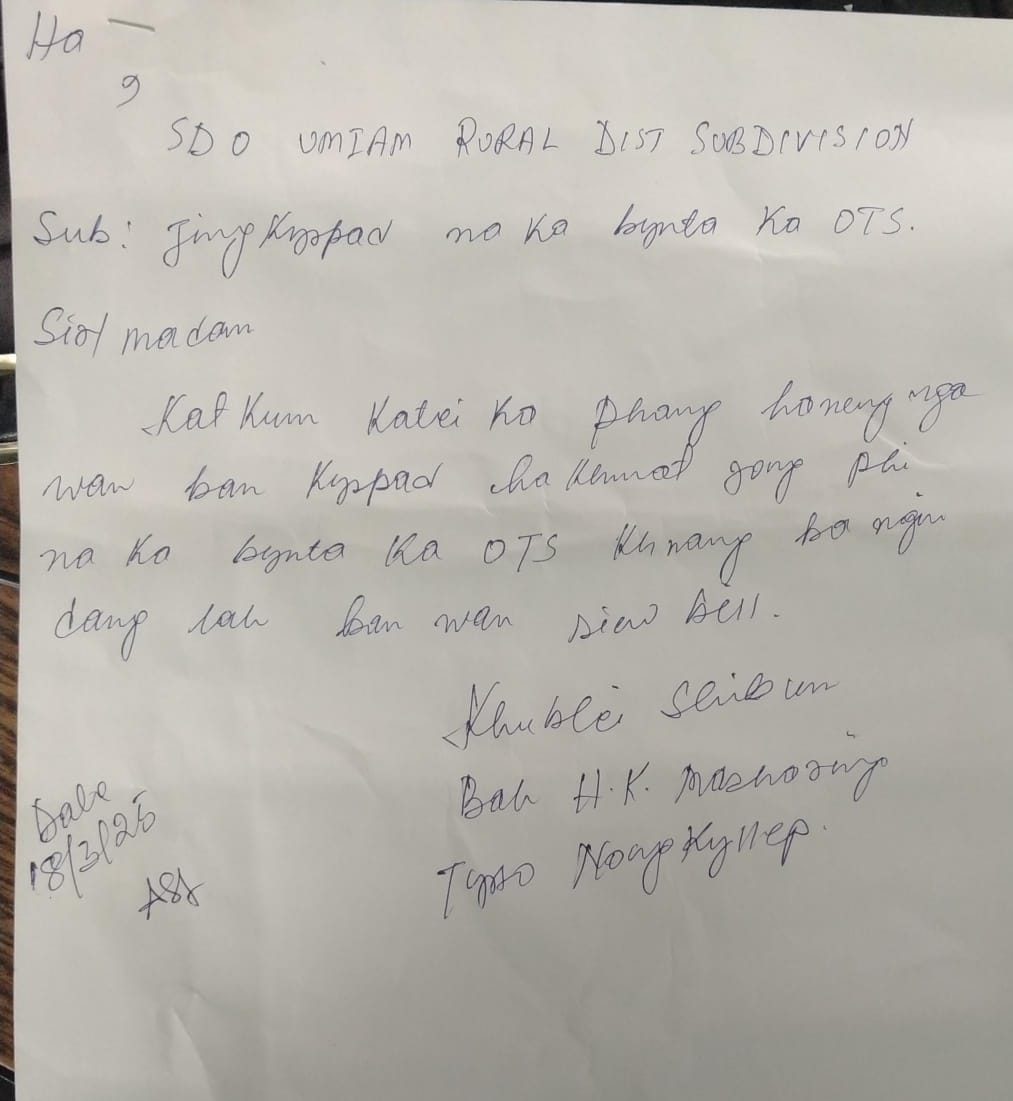 Ha
,
SDO UMIAM RURAL DIST SUBDIVISION
Sub: Jingkyrpad na ka bynta ka OTS.
Sir/madam
Katkum katei ka phang haneng nga
wan ban kyrpad ha khmat jong phi
na ka bynta ka OTS khnang ba ngin
dang lah ban wan siew bill.
Khublei Shibun
Bah H.K. Masharing
Tyrso Nongkyllep.
Date
18/3/25